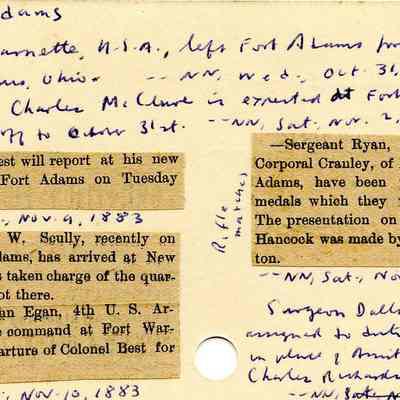 dams
arnette, U.S.A., left Fort Adams for
us, Ohio. -- NN, Wed., Oct. 31,
Charles McClure is expected at Fort
31st. -- NN, Sat. Nov. 2,
est will report at his new
Fort Adams on Tuesday
, Nov. 9, 1883
W. Scully, recently on
dams, has arrived at New
s taken charge of the quar-
ot there.
nn Egan, 4th U. S. Ar-
e command at Fort War-
arture of Colonel Best for
, Nov. 10, 1883
Rifle matches
—Sergeant Ryan,
Corporal Cranley, of
Adams, have been
medals which they
The presentation on
Hancock was made by
ton.
-- NN, Sat., No
Surgeon Dall
assigned to duty
in place of Assist
Charles Richards
-- NN, Sat. N